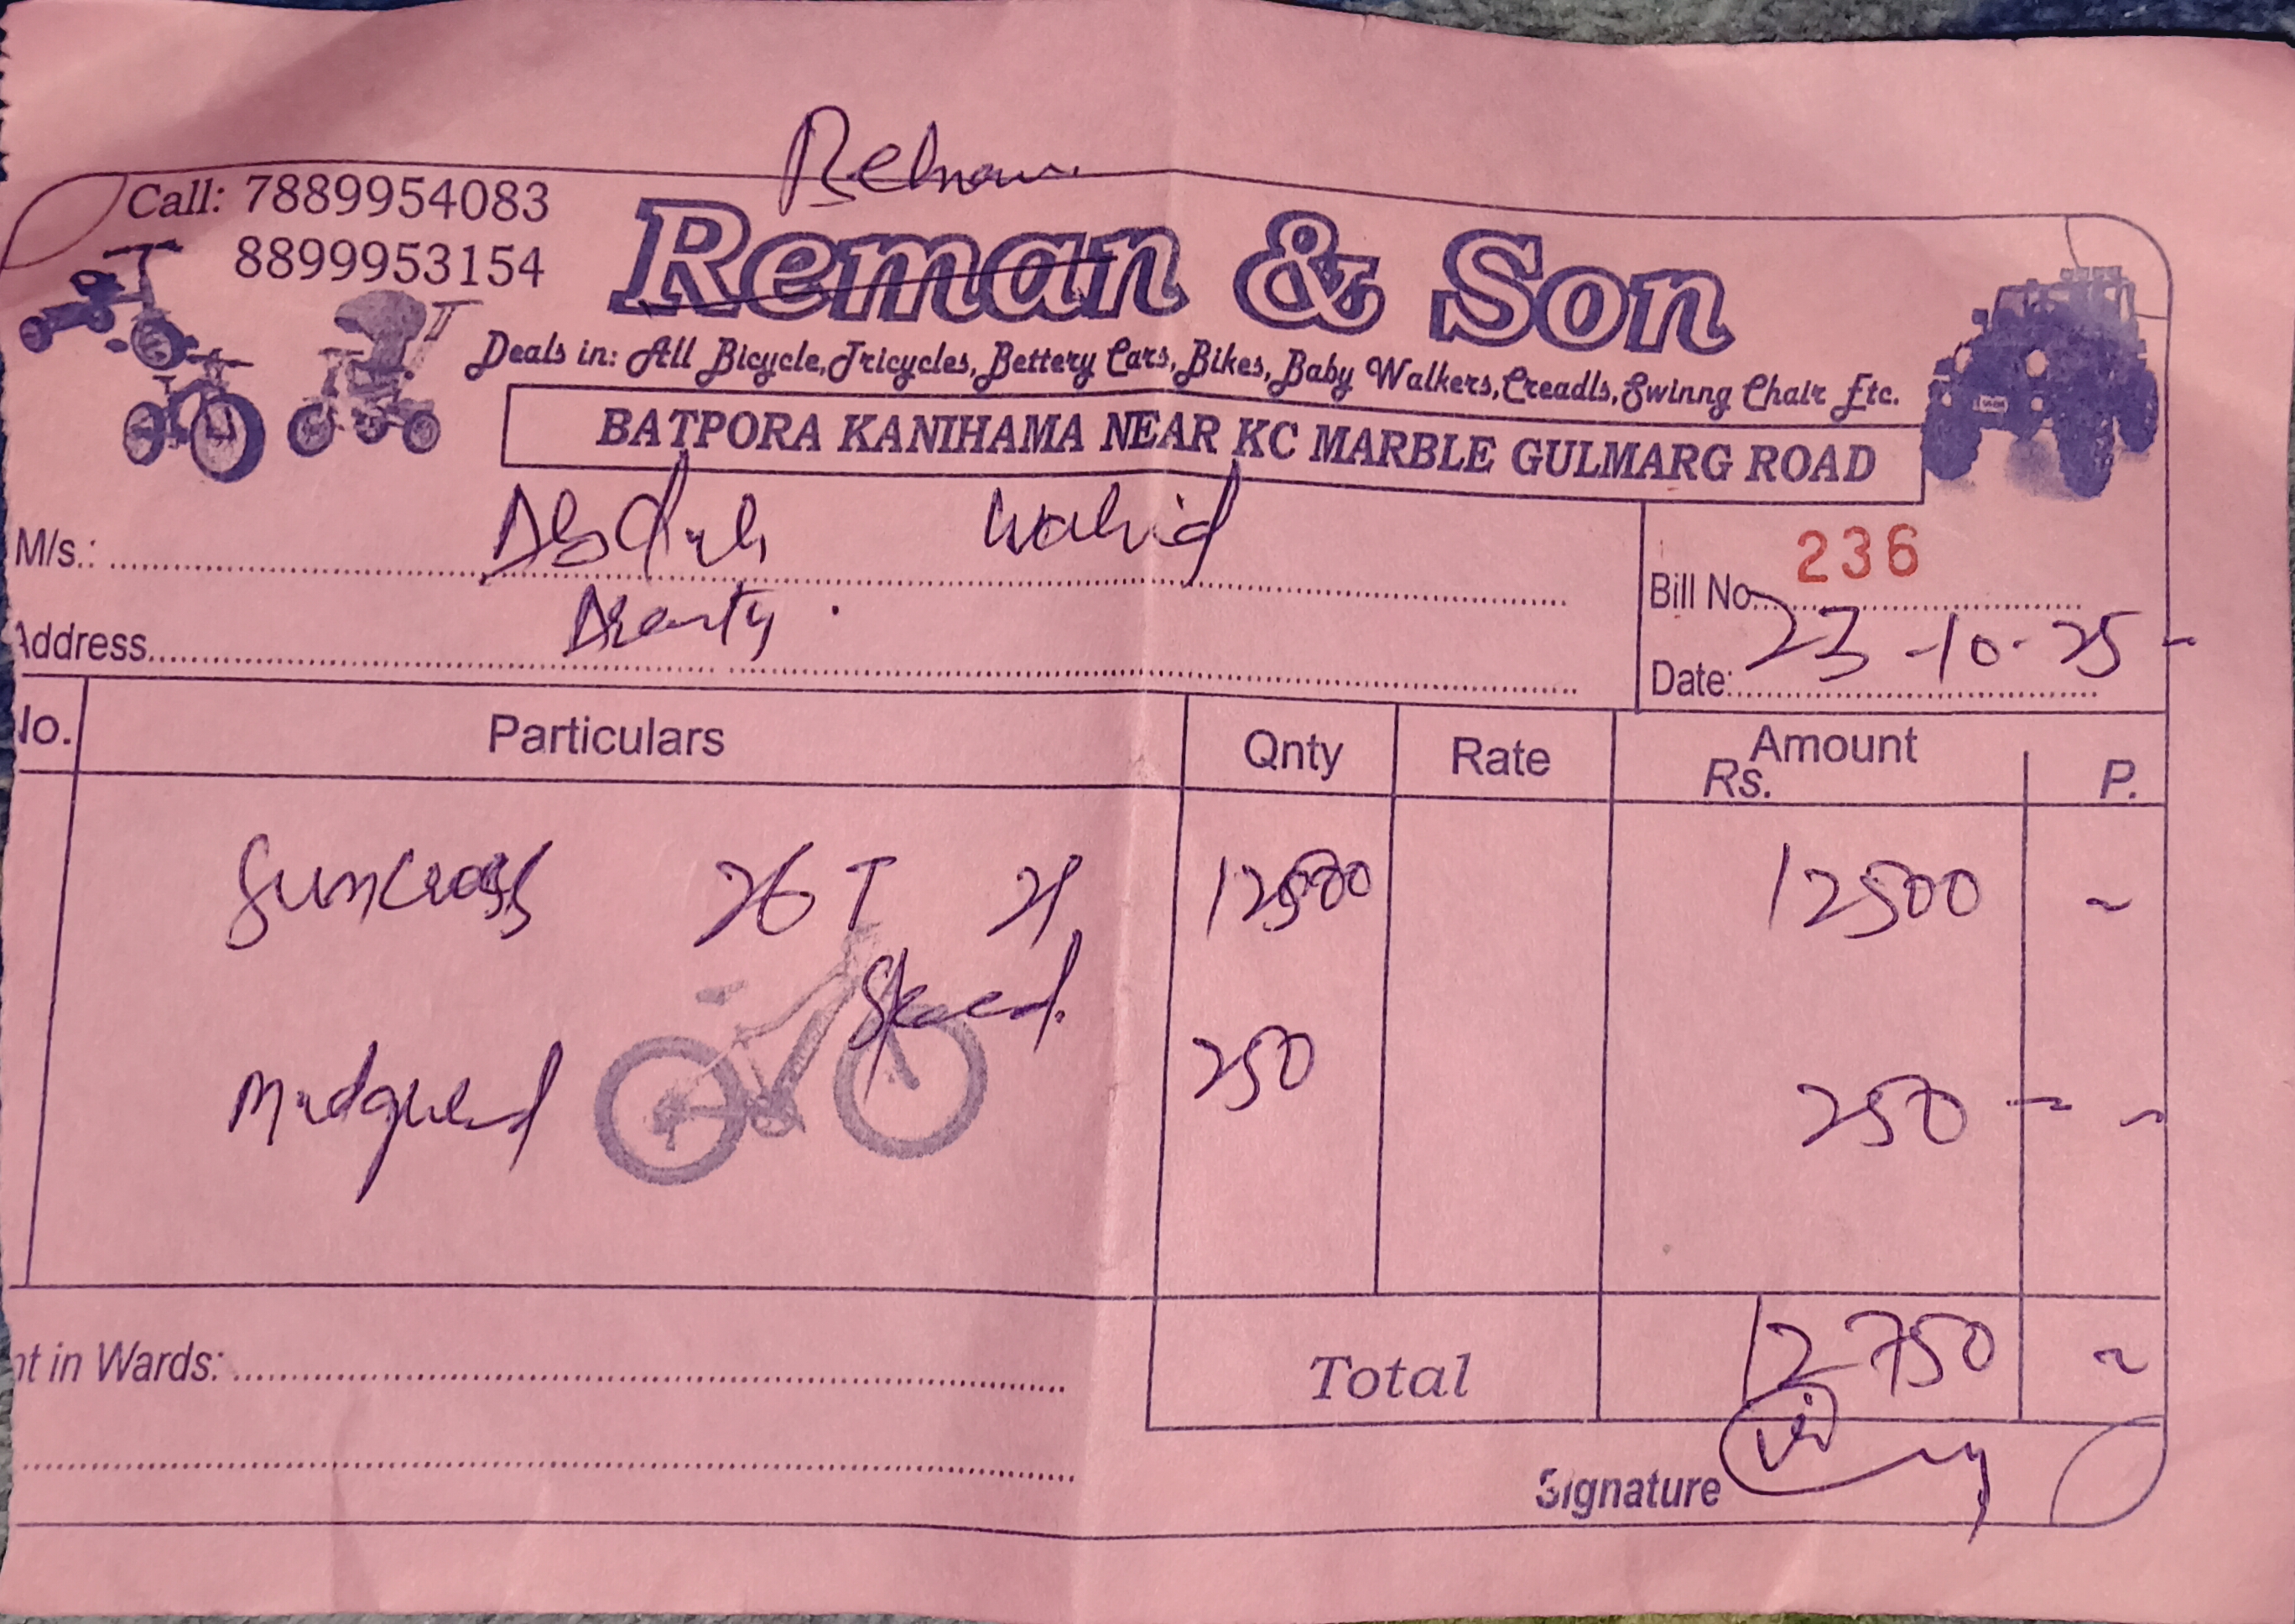 Rehman
Call: 7889954083
8899953154
Reman & Son
Deals in: All Bicycle, Tricycles, Bettery Cars, Bikes, Baby Walkers, Creadls, Swinng Chair Etc.
BATPORA KANIHAMA NEAR KC MARBLE GULMARG ROAD
M/s.: Abdul Wahid
Bill No. 236
Address
Date: 23-10-25
No. Particulars Qnty Rate Amount Rs. P.
Suncross 26 T 21 12500 12500
Speed.
Mudgued 250 250
nt in Wards:
Total 12750
Signature